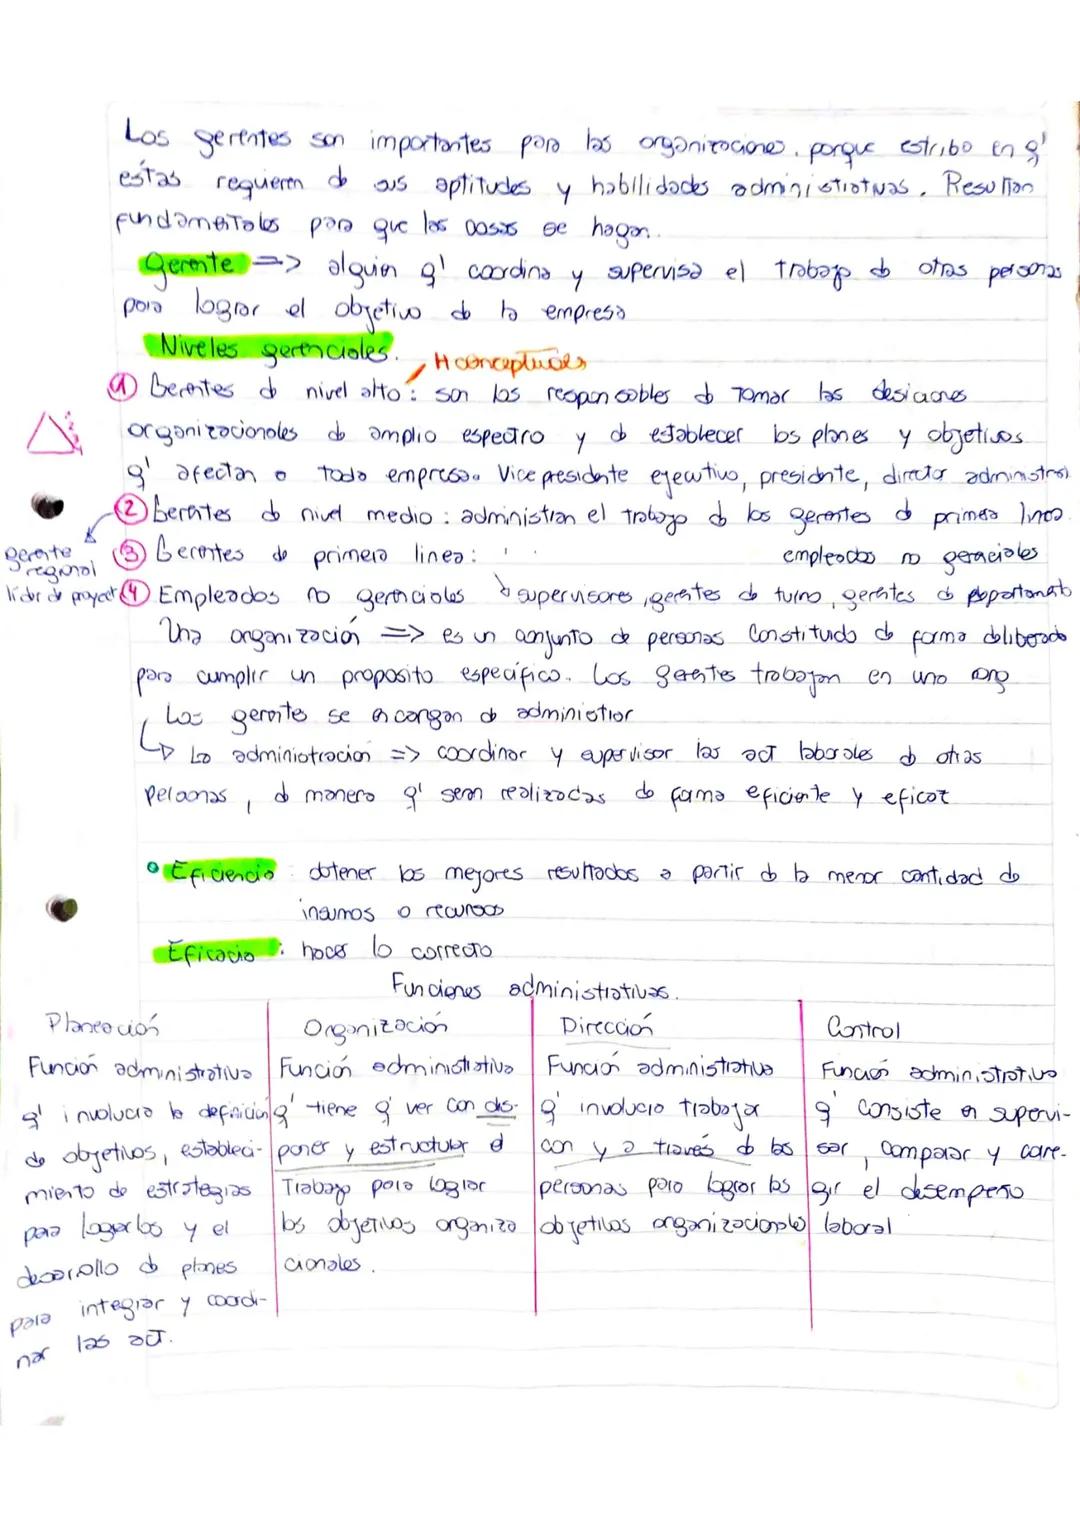 Los gerentes son importantes para las organizaciones, porque estriba en q'
estas requieren de sus aptitudes y habilidades administrativas. Resultan
fundamentales para que las cosas se hagan.
Gerente => alguien q' coordina y supervisa el trabajo de otras personas
para lograr el objetivo de la empresa
Niveles gerenciales.
H conceptuales
1 Gerentes de nivel alto: son los responsables de tomar las desiciones
organizacionales de amplio espectro y de establecer los planes y objetivos
q' afectan a toda empresa. Vicepresidente ejecutivo, presidente, director administra
2 Gerentes de nivel medio: administran el trabajo de los gerentes de primera linea.
gerente regional
lider de proyect
3 Gerentes de primera linea: empleados no gerenciales
4 Empleados no gerenciales
supervisores, gerentes de turno, gerentes de departamento
Una organización => es un conjunto de personas constituido de forma deliberada
para cumplir un proposito específico. Los gerentes trabajan en una org
Los gerentes se encargan de administrar
La administracion => coordinar y supervisar las act laborales de otras
personas, de manera q' sean realizadas de forma eficiente y eficaz
Eficiencia: obtener los mejores resultados a partir de la menor cantidad de
insumos o recursos
Eficacia: hacer lo correcto
Funciones administrativas.
Planeación
Función administrativa
q' involucra la definición
de objetivos, estableci-
miento de estrategias
para lograrlos y el
desarrollo de planes
para integrar y coordi-
nar las act.
Organización
Función administrativa
q' tiene q' ver con dis-
poner y estructurar el
Trabajo para lograr
los objetivos organiza
cionales.
Dirección
Función administrativa
q' involucra trabajar
con y a través de las
personas para lograr los
objetivos organizacionales
Control
Función administrativa
q' consiste en supervi-
sar, comparar y corre-
gir el desempeño
laboral